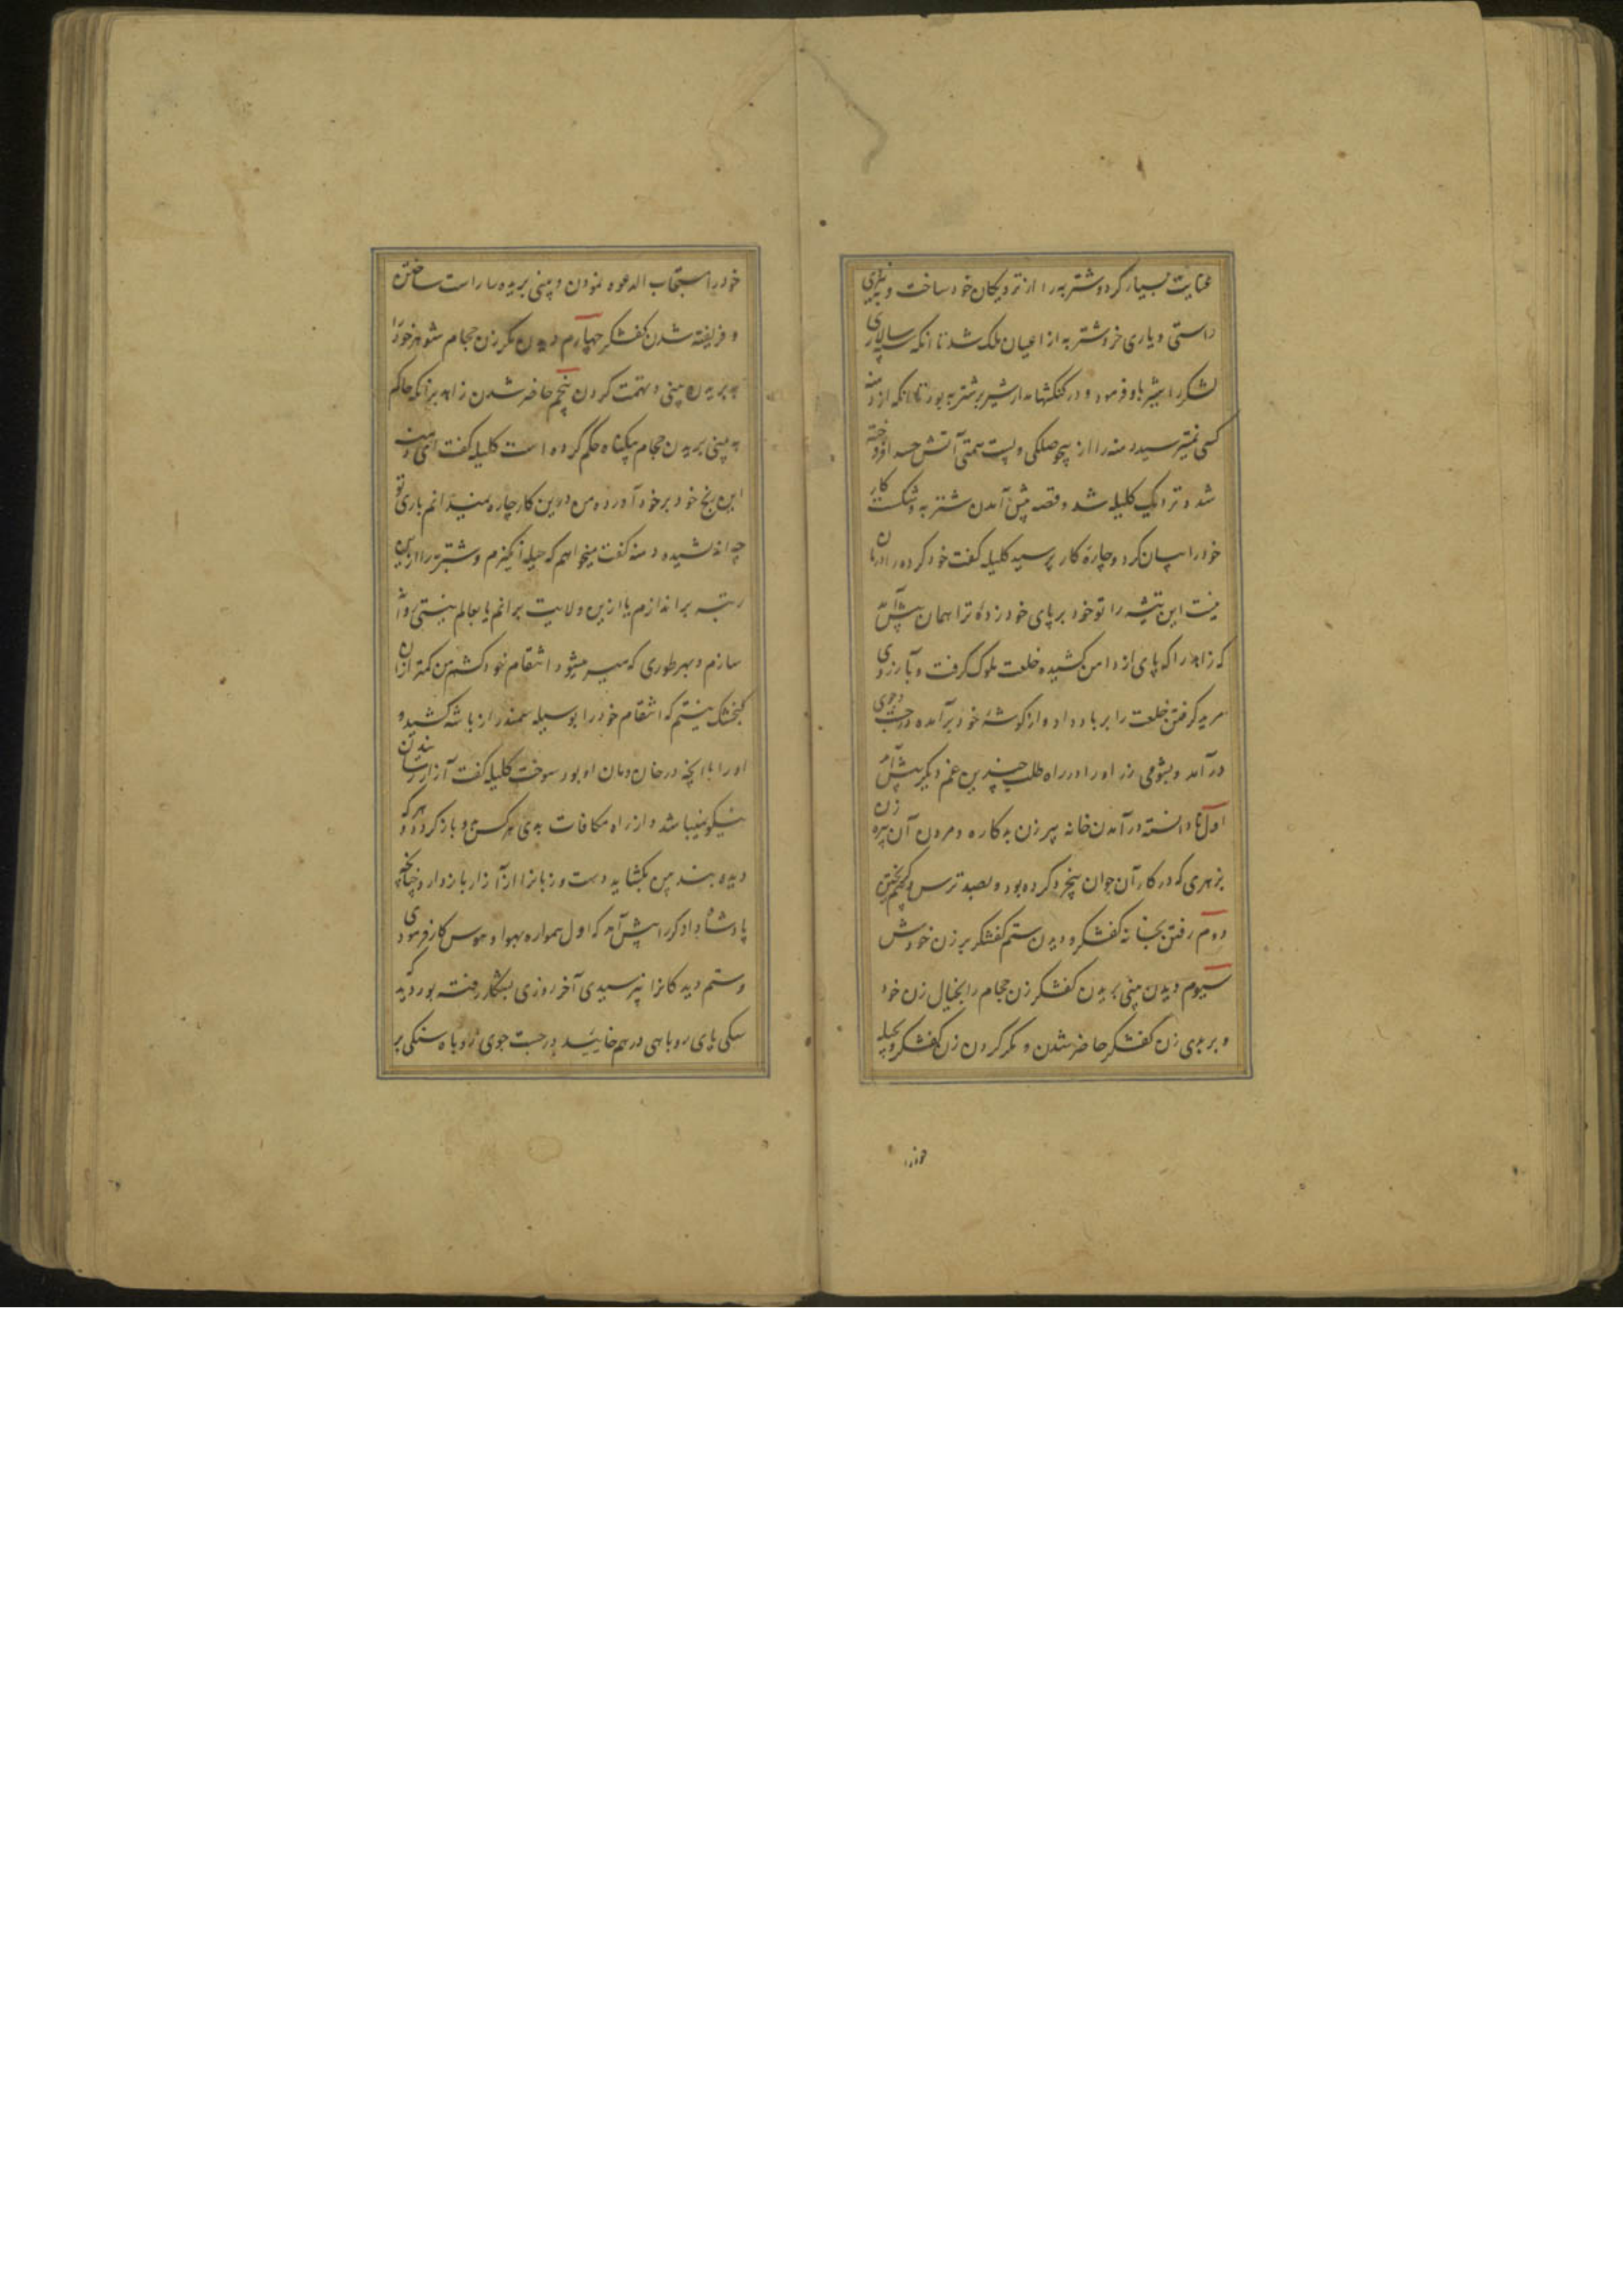 عنایت بسیار کرد و شتربه را از نزدیکان خود ساخت و به نیروی
راستی و یاری خرد شتربه از اعیان ملک شد تا آنکه سپه سالاری
لشکر را بیشتر باو فرمود و در کنکشها مدار شیر بر شتربه بود تا آنکه از دمنه
کسی نمیپرسید دمنه را از بیحوصلکی و پست همتی آتش حسد افروخته
شد و نزدیک کلیله شد و قصه پیش آمدن شتربه و شکست کار
خود را بیان کرد و چاره کار پرسید کلیله کفت خود کرده را درمان
نیست این تیشه را تو خود بر پای خود زدهٔ ترا همان پیش آمد
که زاهد را که پای از دامن کشیده خلعت ملوک کرفت و بآرزوی
مرید کرفتن خلعت را برباد داد و از کوشهٔ خود برآمده در جست و جوی
درآمد و بشومی زر او را در راه طلب چندین غم دیکر پیش آمد
اول نادانسته درآمدن خانه پیر زن بدکاره و مردن آن پیره زن
بزهری که در کار آن جوان بیخرد کرده بود و بصد ترس
دوم رفتن بخانه کفشکر و دیدن ستم کفشکر بر زن خودش
سیوم دیدن بینی بریدن کفشکر زن حجام را بخیال زن خود
و بر بوی زن کفشکر حاضر شدن و مکر کردن زن کفشکر و بحیله
خود را
خود را مستجاب الدعوه نمودن و بینی بریده را راست ساختن
و فریفته شدن کفشکر چهارم دیدن مکر زن حجام شوهر خود را
به بریدن بینی و تهمت کردن پنجم حاضر شدن زاهد بر آنکه حاکم
به بینی بریدن حجام بیکناه حکم کرده است کلیله کفت ای دمنه
این رنج خود بر خود آوردهٔ من درین کار چاره نمیدانم باری تو
چه اندیشیده دمنه کفت میخواهم که حیله انکیزم و شتربه را ازین
رتبه براندازم یا ازین ولایت برانم یا بعالم نیستی روانه
سازم و بهر طوری که میسر میشود انتقام خود کشم من کمتر از آن
کنجشک نیستم که انتقام خود را بوسیله سمندر از باشه کشید و
او را با آنچه در خان و مان او بود سوخت کلیله کفت آزار رسانیدن
نیکو نمیباشد و از راه مکافات بدی هر کس باو باز کردد و هر که
دیده بند من بکشاید دست و زبانرا از آزار باز دارد چنانچه
پادشاه دادکر را پیش آمد که اول همواره بهوا و هوس کار فرمودی
و ستم دیدکانرا نپرسیدی آخر روزی بشکار رفته بود دید که
سکی پای روباهی درهم خایید در جست جوی روباه سنکی بر